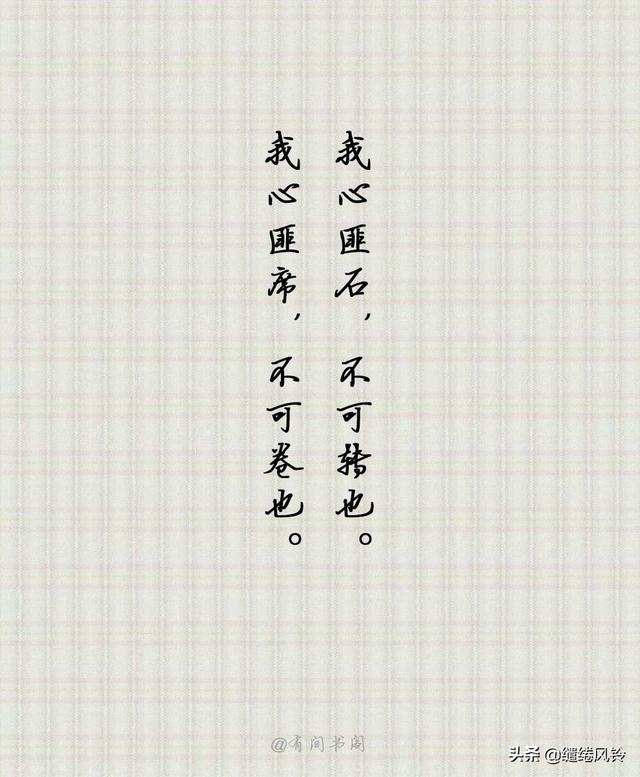 我心匪石，不可转也。
我心匪席，不可卷也。
@有间书阁
头条 @缱绻风铃